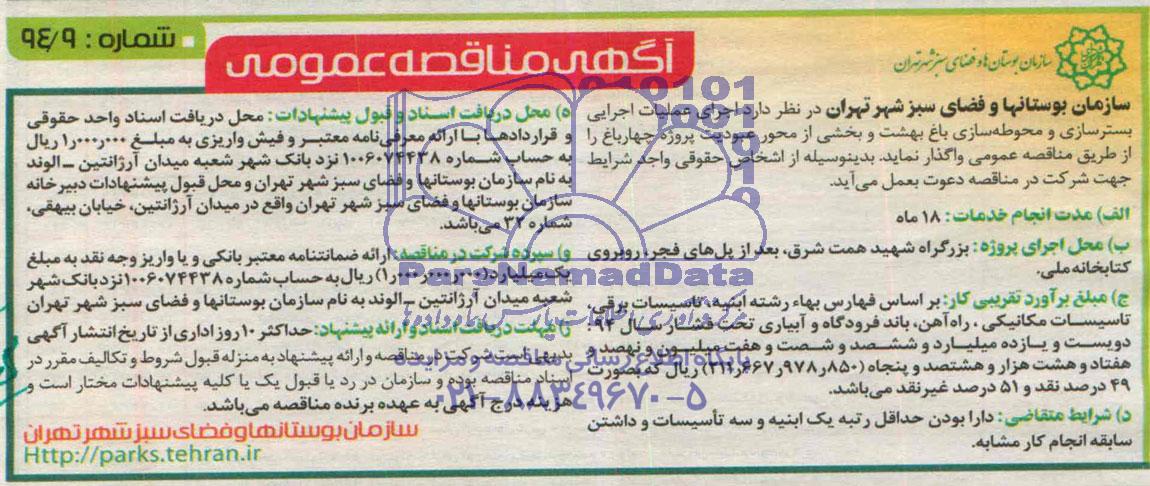 شماره : ۹۴/۹
آگهی مناقصه عمومی
سازمان بوستان‌ها و فضای سبز شهر تهران
سازمان بوستانها و فضای سبز شهر تهران در نظر دارد اجرای عملیات اجرایی
بسترسازی و محوطه‌سازی باغ بهشت و بخشی از محور عبودیت پروژه چهارباغ را
از طریق مناقصه عمومی واگذار نماید. بدینوسیله از اشخاص حقوقی واجد شرایط
جهت شرکت در مناقصه دعوت بعمل می‌آید.
الف) مدت انجام خدمات: ۱۸ ماه
ب) محل اجرای پروژه: بزرگراه شهید همت شرق، بعد از پل‌های فجر، روبروی
کتابخانه ملی.
ج) مبلغ برآورد تقریبی کار: بر اساس فهارس بهاء رشته ابنیه، تاسیسات برقی،
تاسیسات مکانیکی، راه‌آهن، باند فرودگاه و آبیاری تحت فشار سال ۹۴:
دویست و یازده میلیارد و ششصد و شصت و هفت میلیون و نهصد و
هفتاد و هشت هزار و هشتصد و پنجاه (۲۱۱٫۶۶۷٫۹۷۸٫۸۵۰) ریال که بصورت
۴۹ درصد نقد و ۵۱ درصد غیرنقد می‌باشد.
د) شرایط متقاضی: دارا بودن حداقل رتبه یک ابنیه و سه تأسیسات و داشتن
سابقه انجام کار مشابه.
ه) محل دریافت اسناد و قبول پیشنهادات: محل دریافت اسناد واحد حقوقی
و قراردادها با ارائه معرفی‌نامه معتبر و فیش واریزی به مبلغ ۱٫۰۰۰٫۰۰۰ ریال
به حساب شماره ۱۰۰۶۰۷۴۴۳۸ نزد بانک شهر شعبه میدان آرژانتین ـ الوند
به نام سازمان بوستانها و فضای سبز شهر تهران و محل قبول پیشنهادات دبیرخانه
سازمان بوستانها و فضای سبز شهر تهران واقع در میدان آرژانتین، خیابان بیهقی،
شماره ۳۲ می‌باشد.
و) سپرده شرکت در مناقصه: ارائه ضمانتنامه معتبر بانکی و یا واریز وجه نقد به مبلغ
یک میلیارد (۱٫۰۰۰٫۰۰۰٫۰۰۰) ریال به حساب شماره ۱۰۰۶۰۷۴۴۳۸ نزد بانک شهر
شعبه میدان آرژانتین ـ الوند به نام سازمان بوستانها و فضای سبز شهر تهران
ز) مهلت دریافت اسناد و ارائه پیشنهاد: حداکثر ۱۰ روز اداری از تاریخ انتشار آگهی
بدیهی است شرکت در مناقصه و ارائه پیشنهاد به منزله قبول شروط و تکالیف مقرر در
اسناد مناقصه بوده و سازمان در رد یا قبول یک یا کلیه پیشنهادات مختار است و
هزینه درج آگهی به عهده برنده مناقصه می‌باشد.
سازمان بوستانها و فضای سبز شهر تهران
Http://parks.tehran.ir
ParsNamadData
پایگاه اطلاع رسانی مناقصه و مزایده
۰۲۱-۸۸۳۴۹۶۷۰-۵